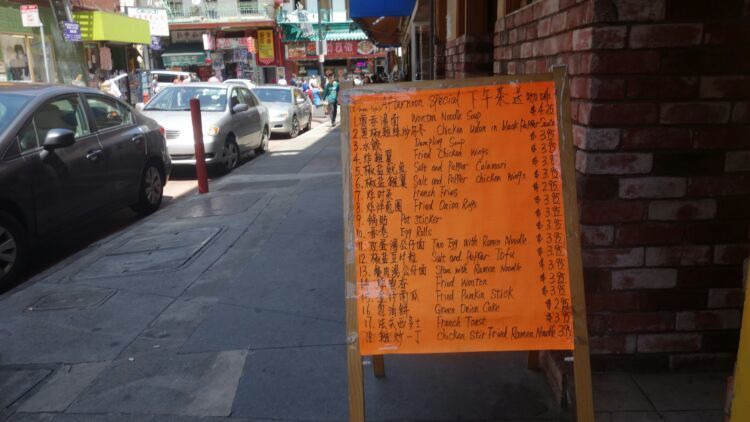 Afternoon Special 下午茶送
1. 雲吞湯面 Wonton Noodle Soup $4.25
2. 黑椒雞絲炒烏冬 Chicken Udon in black Pepper Sauce
3. 水餃 Dumpling Soup $3.95
4. 炸雞翼 Fried Chicken Wings $3.95
5. 椒盐鱿鱼 Salt and Pepper Calamari $3.95
6. 椒盐雞翼 Salt and Pepper Chicken Wings $3.95
7. French Fries $2.95
8. 炸洋葱圈 Fried Onion Rings $3.95
9. 锅贴 Pot Sticker $3.95
10. 春卷 Egg Rolls $3.95
11. 双蛋湯公仔面 Two Egg with Ramen Noodle $3.95
12. 椒盐豆付粒 Salt and Pepper Tofu $3.95
13. 餐肉湯公仔面 Spam with Ramen Noodle $3.95
14. Fried Wonton $3.95
南瓜 Fried Punkin Stick $3.95
16. 葱油餅 Green Onion Cake $2.95
17. 法式西多士 French Toast $3.95
雞炒一丁 Chicken Stir Fried Ramen Noodle 3.95